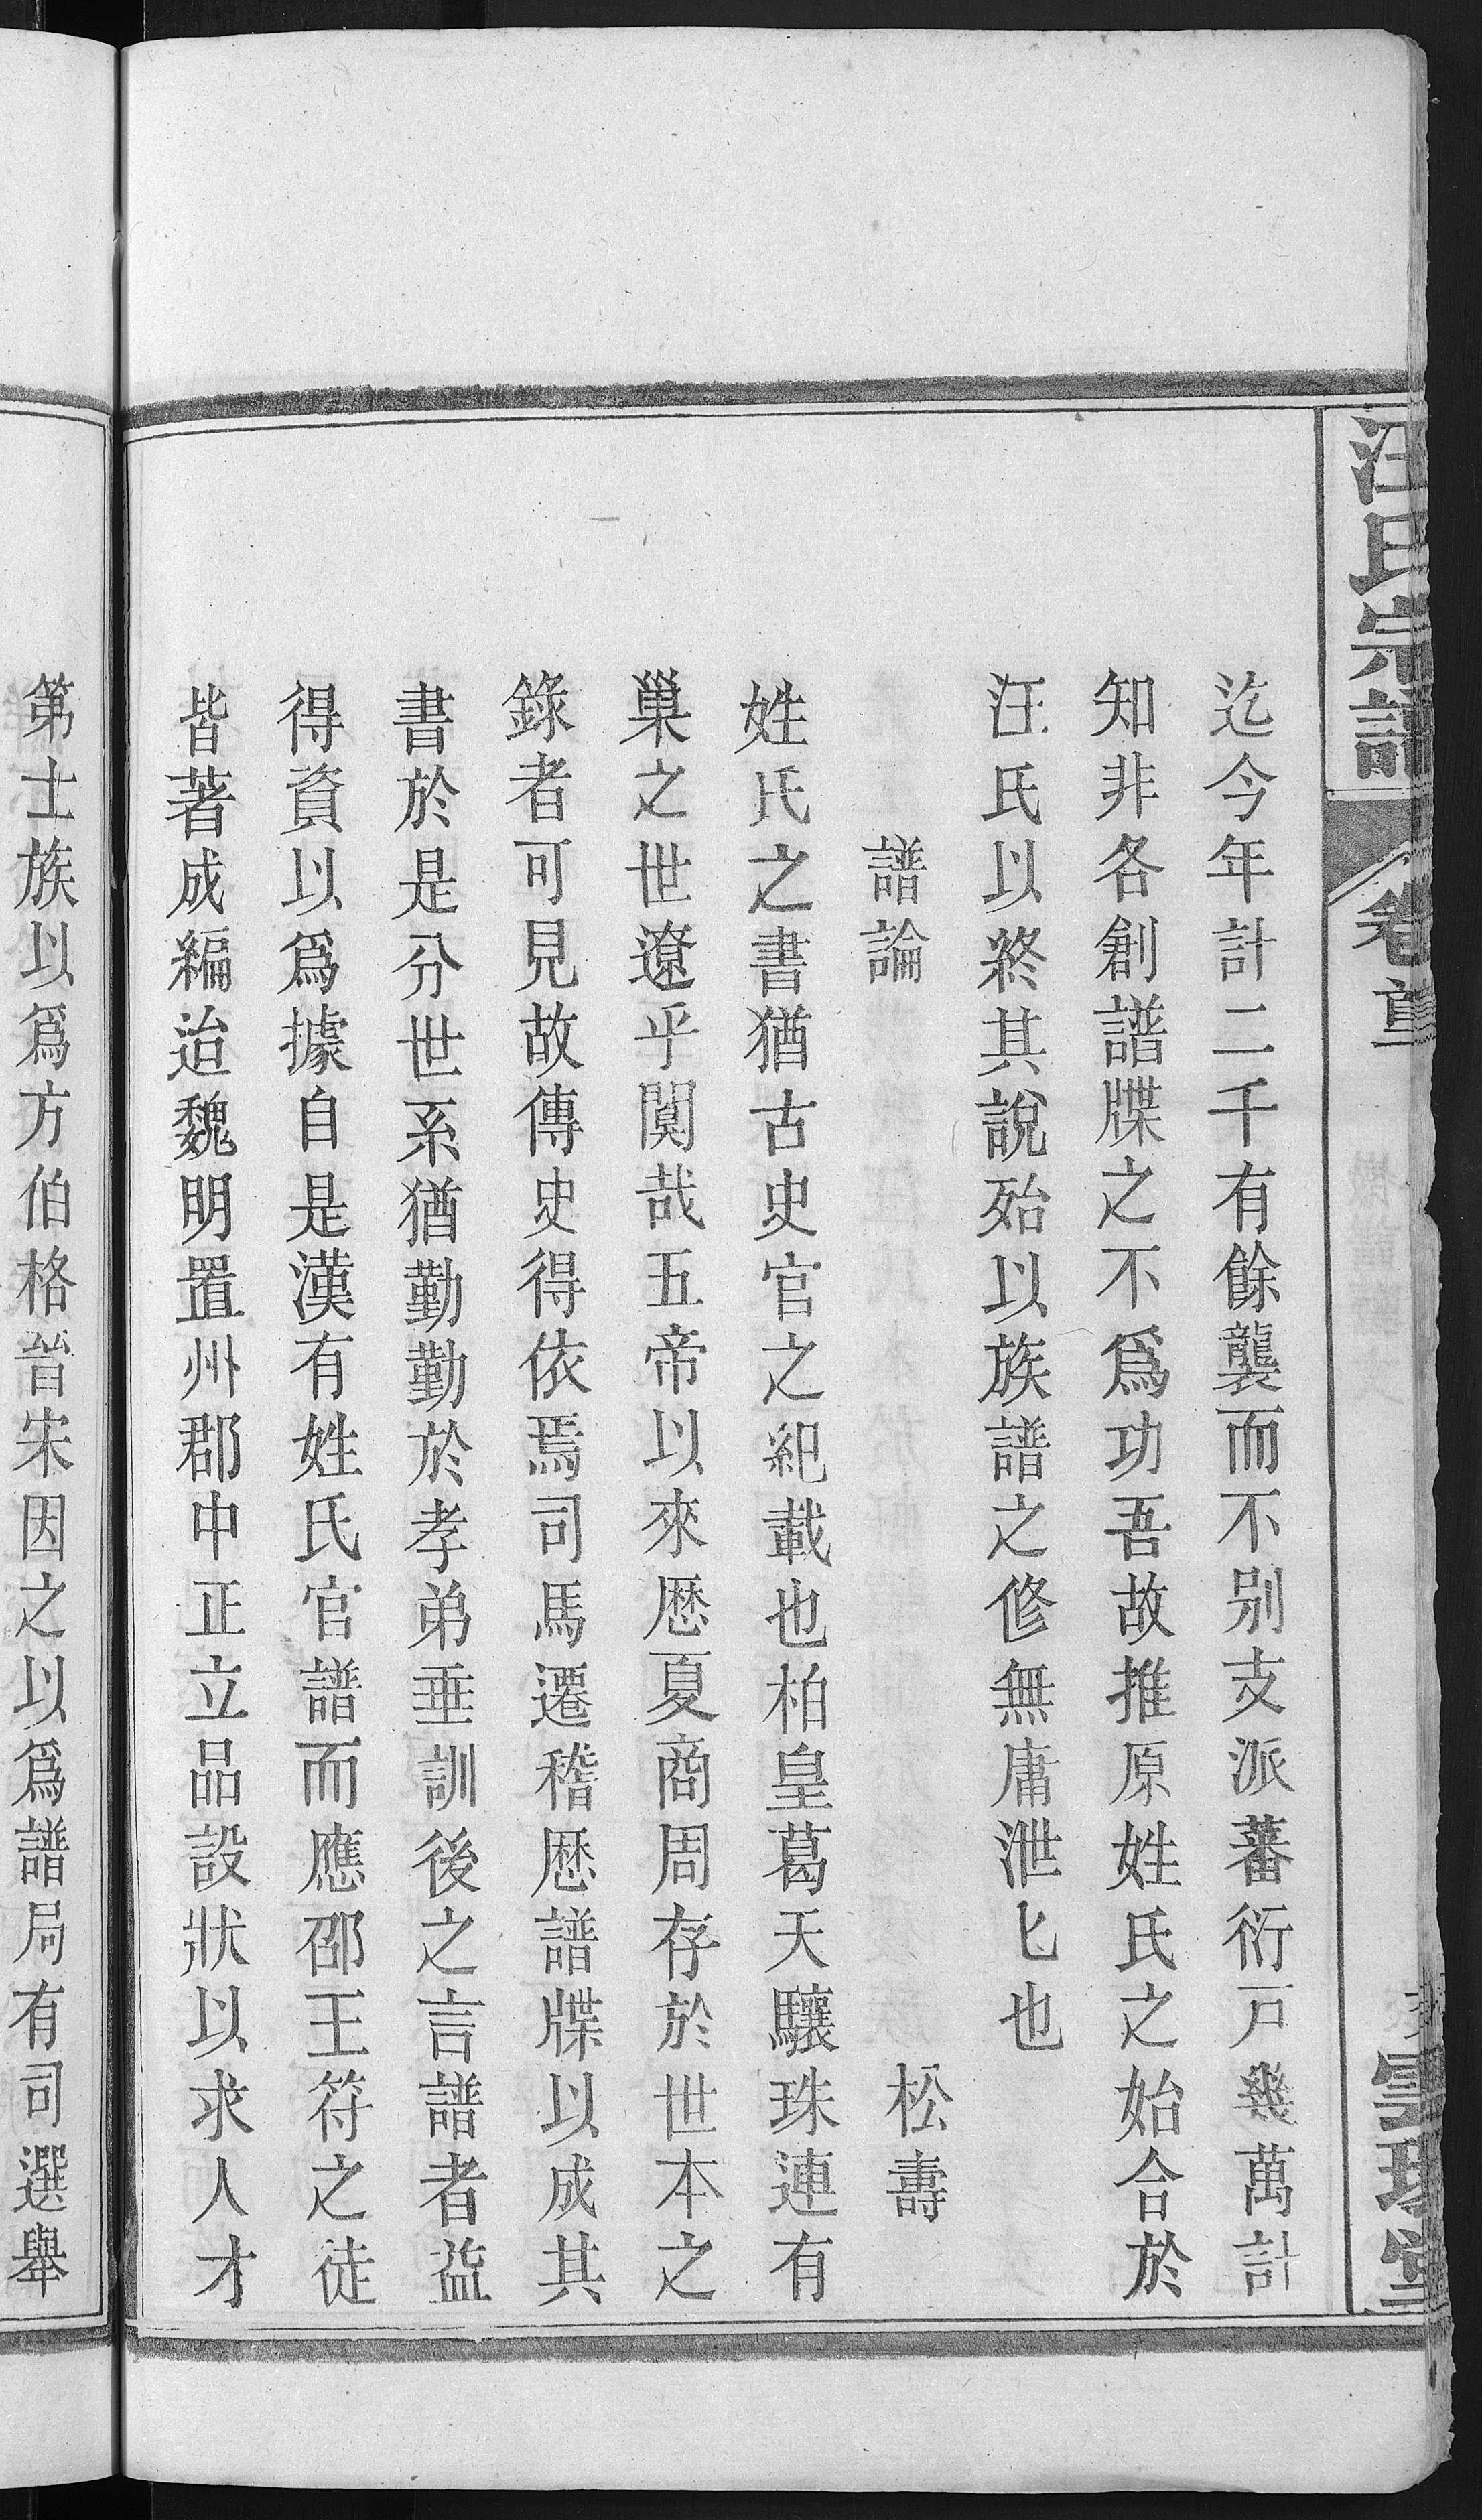 汪氏宗譜
卷首
迄今年計二千有餘襲而不别支派蕃衍戸幾萬計
知非各創譜牒之不爲功吾故推原姓氏之始合於
汪氏以終其說殆以族譜之修無庸泄匕也
譜論 松壽
姓氏之書猶古史官之紀載也柏皇葛天驤珠連有
巢之世遼乎闃哉五帝以來厯夏商周存於世本之
錄者可見故傳史得依焉司馬遷稽厯譜牒以成其
書於是分世系猶勤勤於孝弟垂訓後之言譜者益
得資以爲據自是漢有姓氏官譜而應邵王符之徒
皆著成編迨魏明置州郡中正立品設狀以求人才
第士族以爲方伯格晉宋因之以爲譜局有司選舉